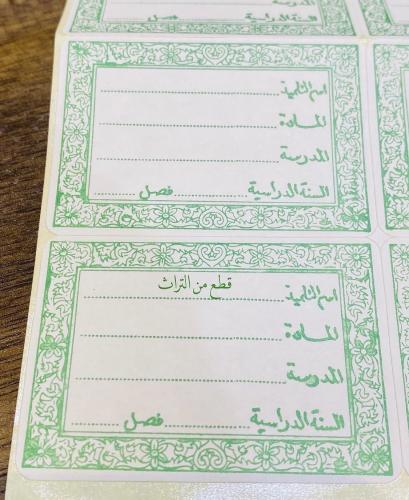 المدرسة
السنة الدراسية فصل
اسم التلميذ
المادة
المدرسة
السنة الدراسية فصل
قطع من التراث
اسم التلميذ
المادة
المدرسة
السنة الدراسية فصل